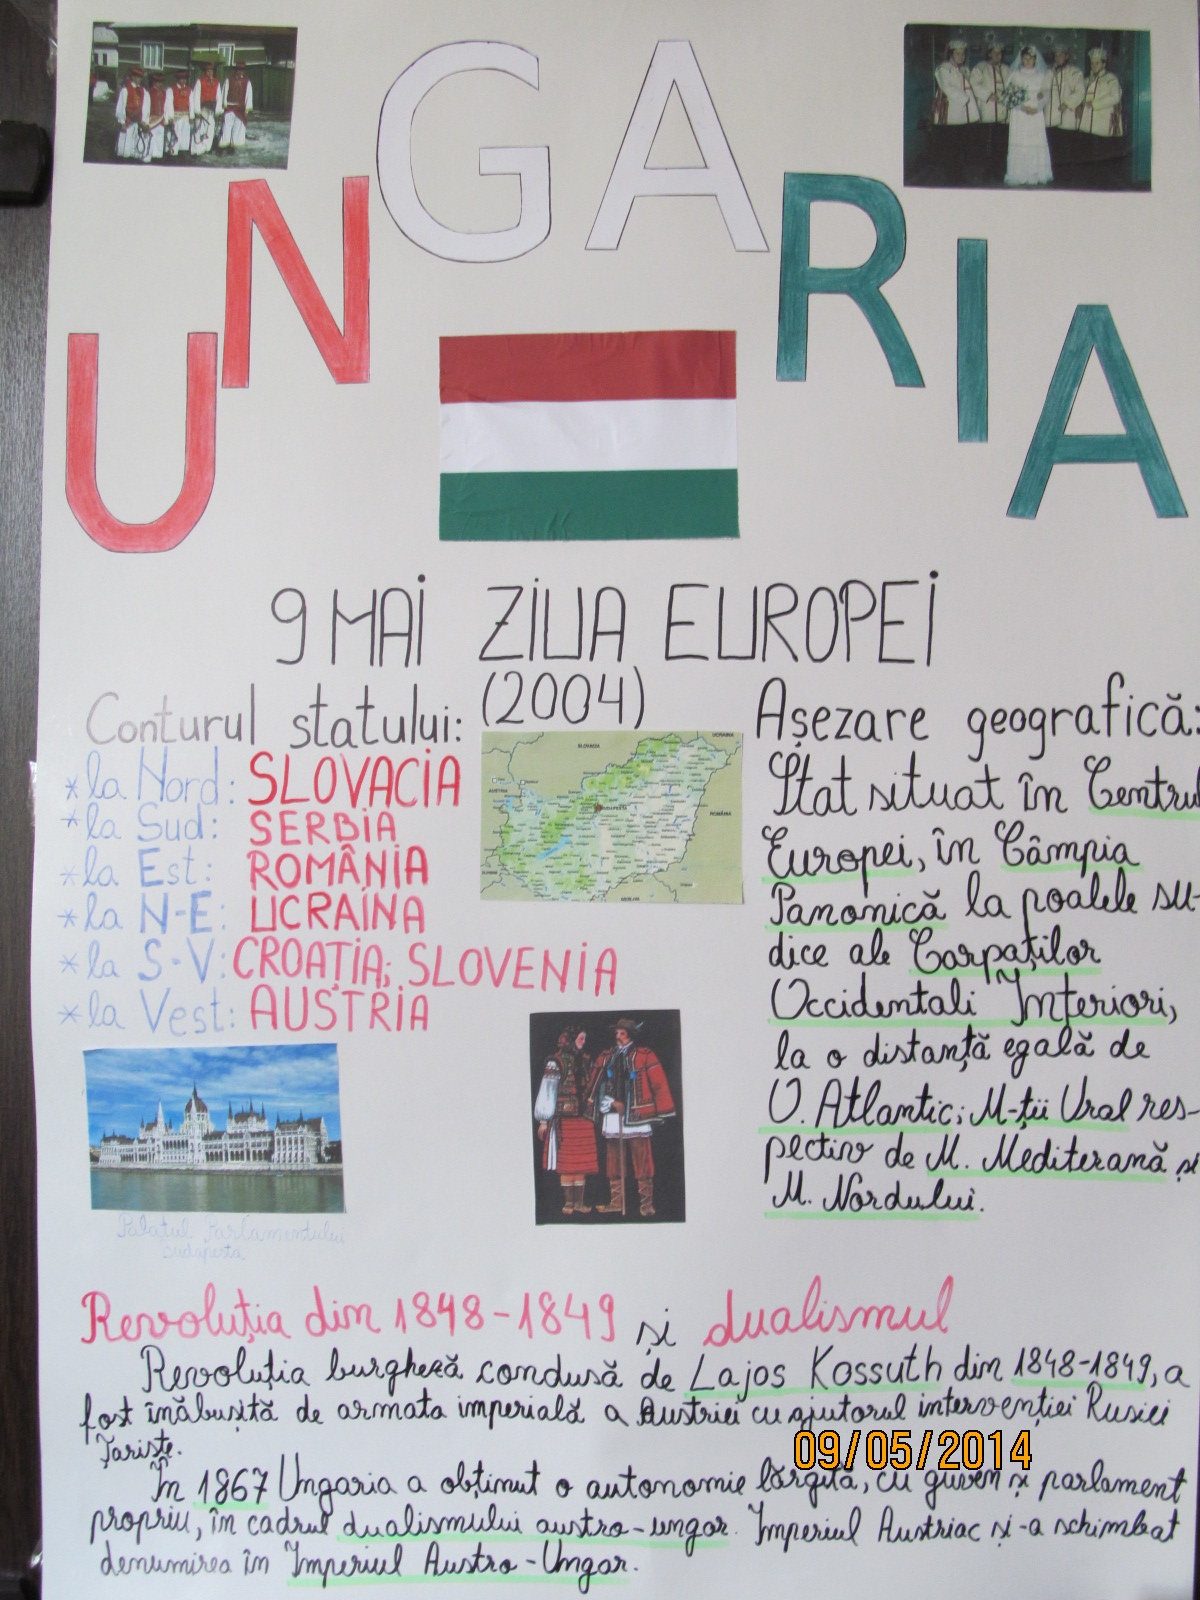 UNGARIA
9 MAI ZIUA EUROPEI
(2004)
Conturul statului:
*la Nord: SLOVACIA
*la Sud: SERBIA
*la Est: ROMÂNIA
*la N-E: UCRAINA
*la S-V: CROAȚIA; SLOVENIA
*la Vest: AUSTRIA
SLOVACIA
UCRAINA
AUSTRIA
ROMÂNIA
BUDAPESTA
SERBIA
Așezare geografică:
Stat situat în Centrul
Europei, în Câmpia
Panonică la poalele su-
dice ale Carpaților
Occidentali Interiori,
la o distanță egală de
O. Atlantic; M-ții Ural res-
pectiv de M. Mediterană și
M. Nordului.
Palatul Parlamentului
Budapesta
Revoluția din 1848-1849 și dualismul
Revoluția burgheză condusă de Lajos Kossuth din 1848-1849, a
fost înăbușită de armata imperială a Austriei cu ajutorul intervenției Rusiei
Țariste.
În 1867 Ungaria a obținut o autonomie lărgită, cu guvern și parlament
propriu, în cadrul dualismului austro-ungar. Imperiul Austriac și-a schimbat
denumirea în Imperiul Austro-Ungar.
09/05/2014